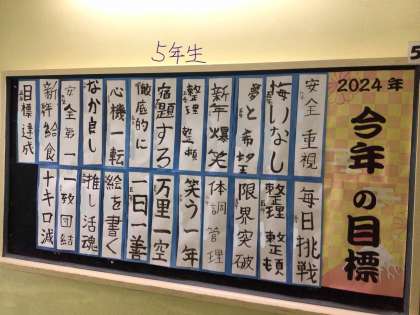 5年生
5
2024年
今年の目標
安全重視
悔いなし
夢と希望
新年爆笑
整理整頓
宿題する
徹底的に
心機一転
なか良し
安全第一
新鮮給食
目標達成
毎日挑戦
整理整頓
限界突破
体調管理
笑う一年
万里一空
一日一善
絵を書く
推し活魂
一致団結
十キロ減